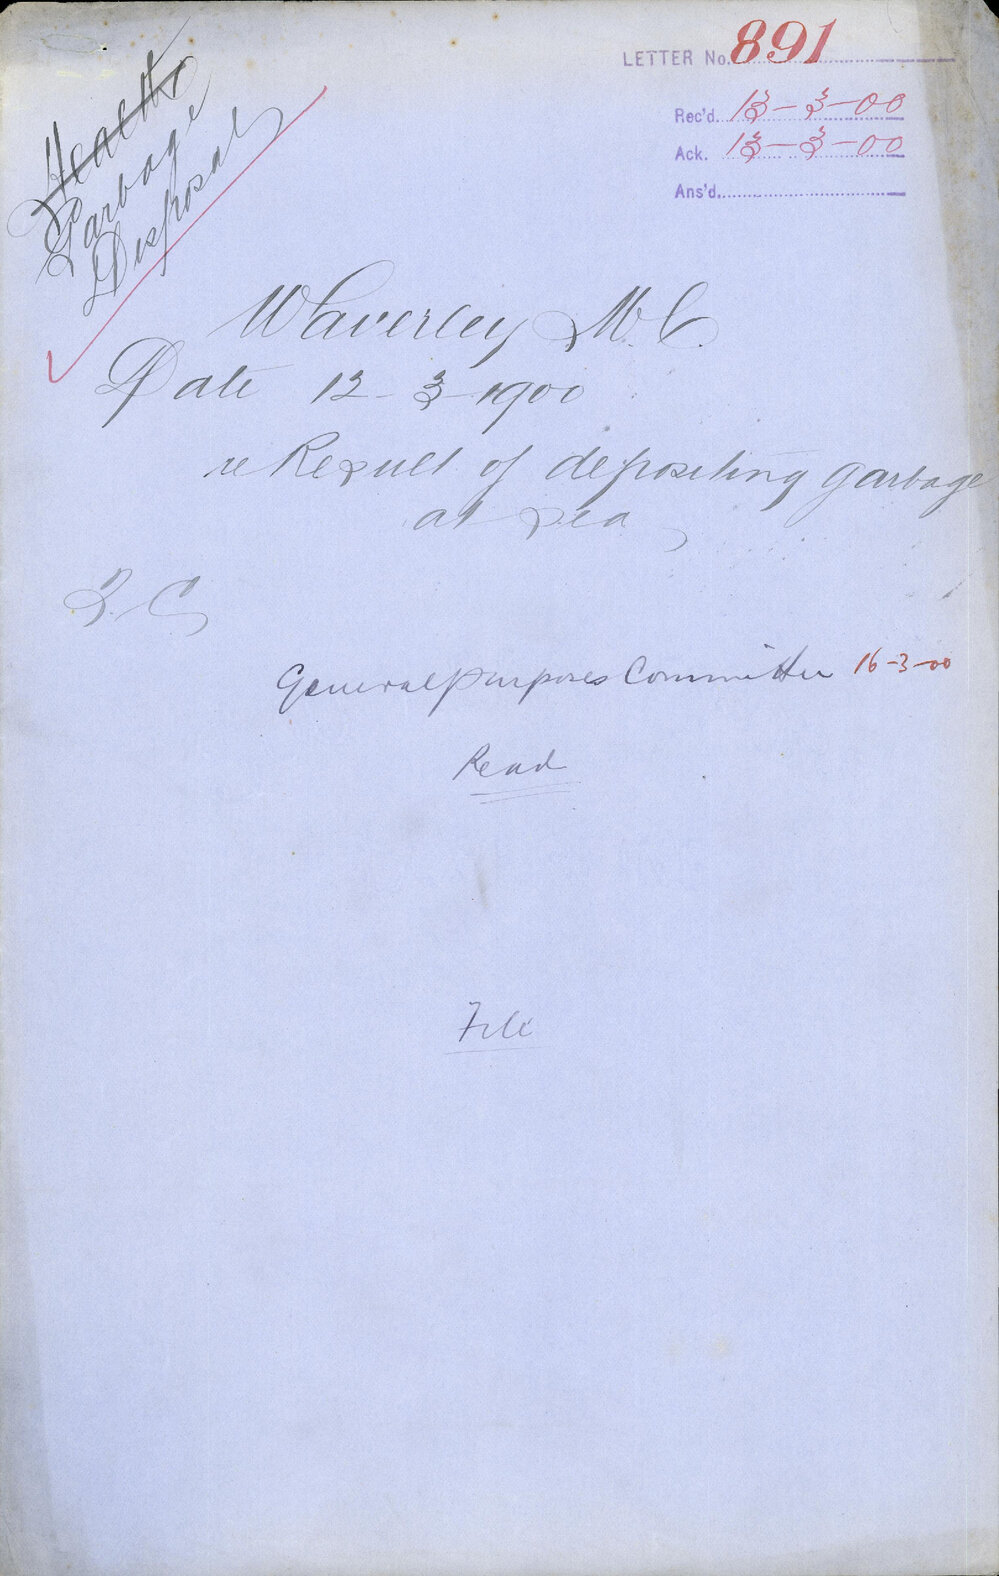 LETTER No. 891
Rec'd. 13-3-00
Ack. 13-3-00
Ans'd.
Health
Garbage
Disposal
Waverley M.C.
Date 12-3-1900
re Result of depositing garbage
at sea
T.C.
General Purposes Committee 16-3-00
Read
File